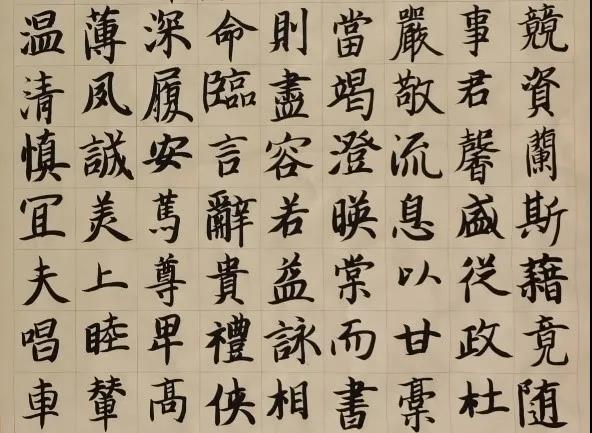 競資蘭斯藉竟随
事君馨盛從政杜
嚴敬流息以甘稾
當竭澄暎棠而書
則盡容若益詠相
命臨言辭貴禮俠
深履安篤尊卑高
薄夙誠美上睦輦
温清慎冝夫唱車